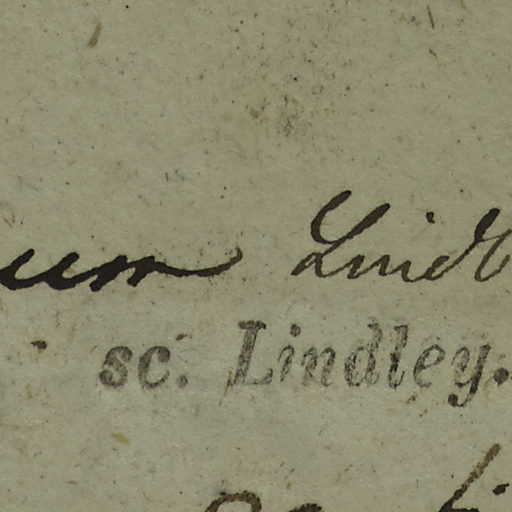 um Lindl
sc. Lindley.